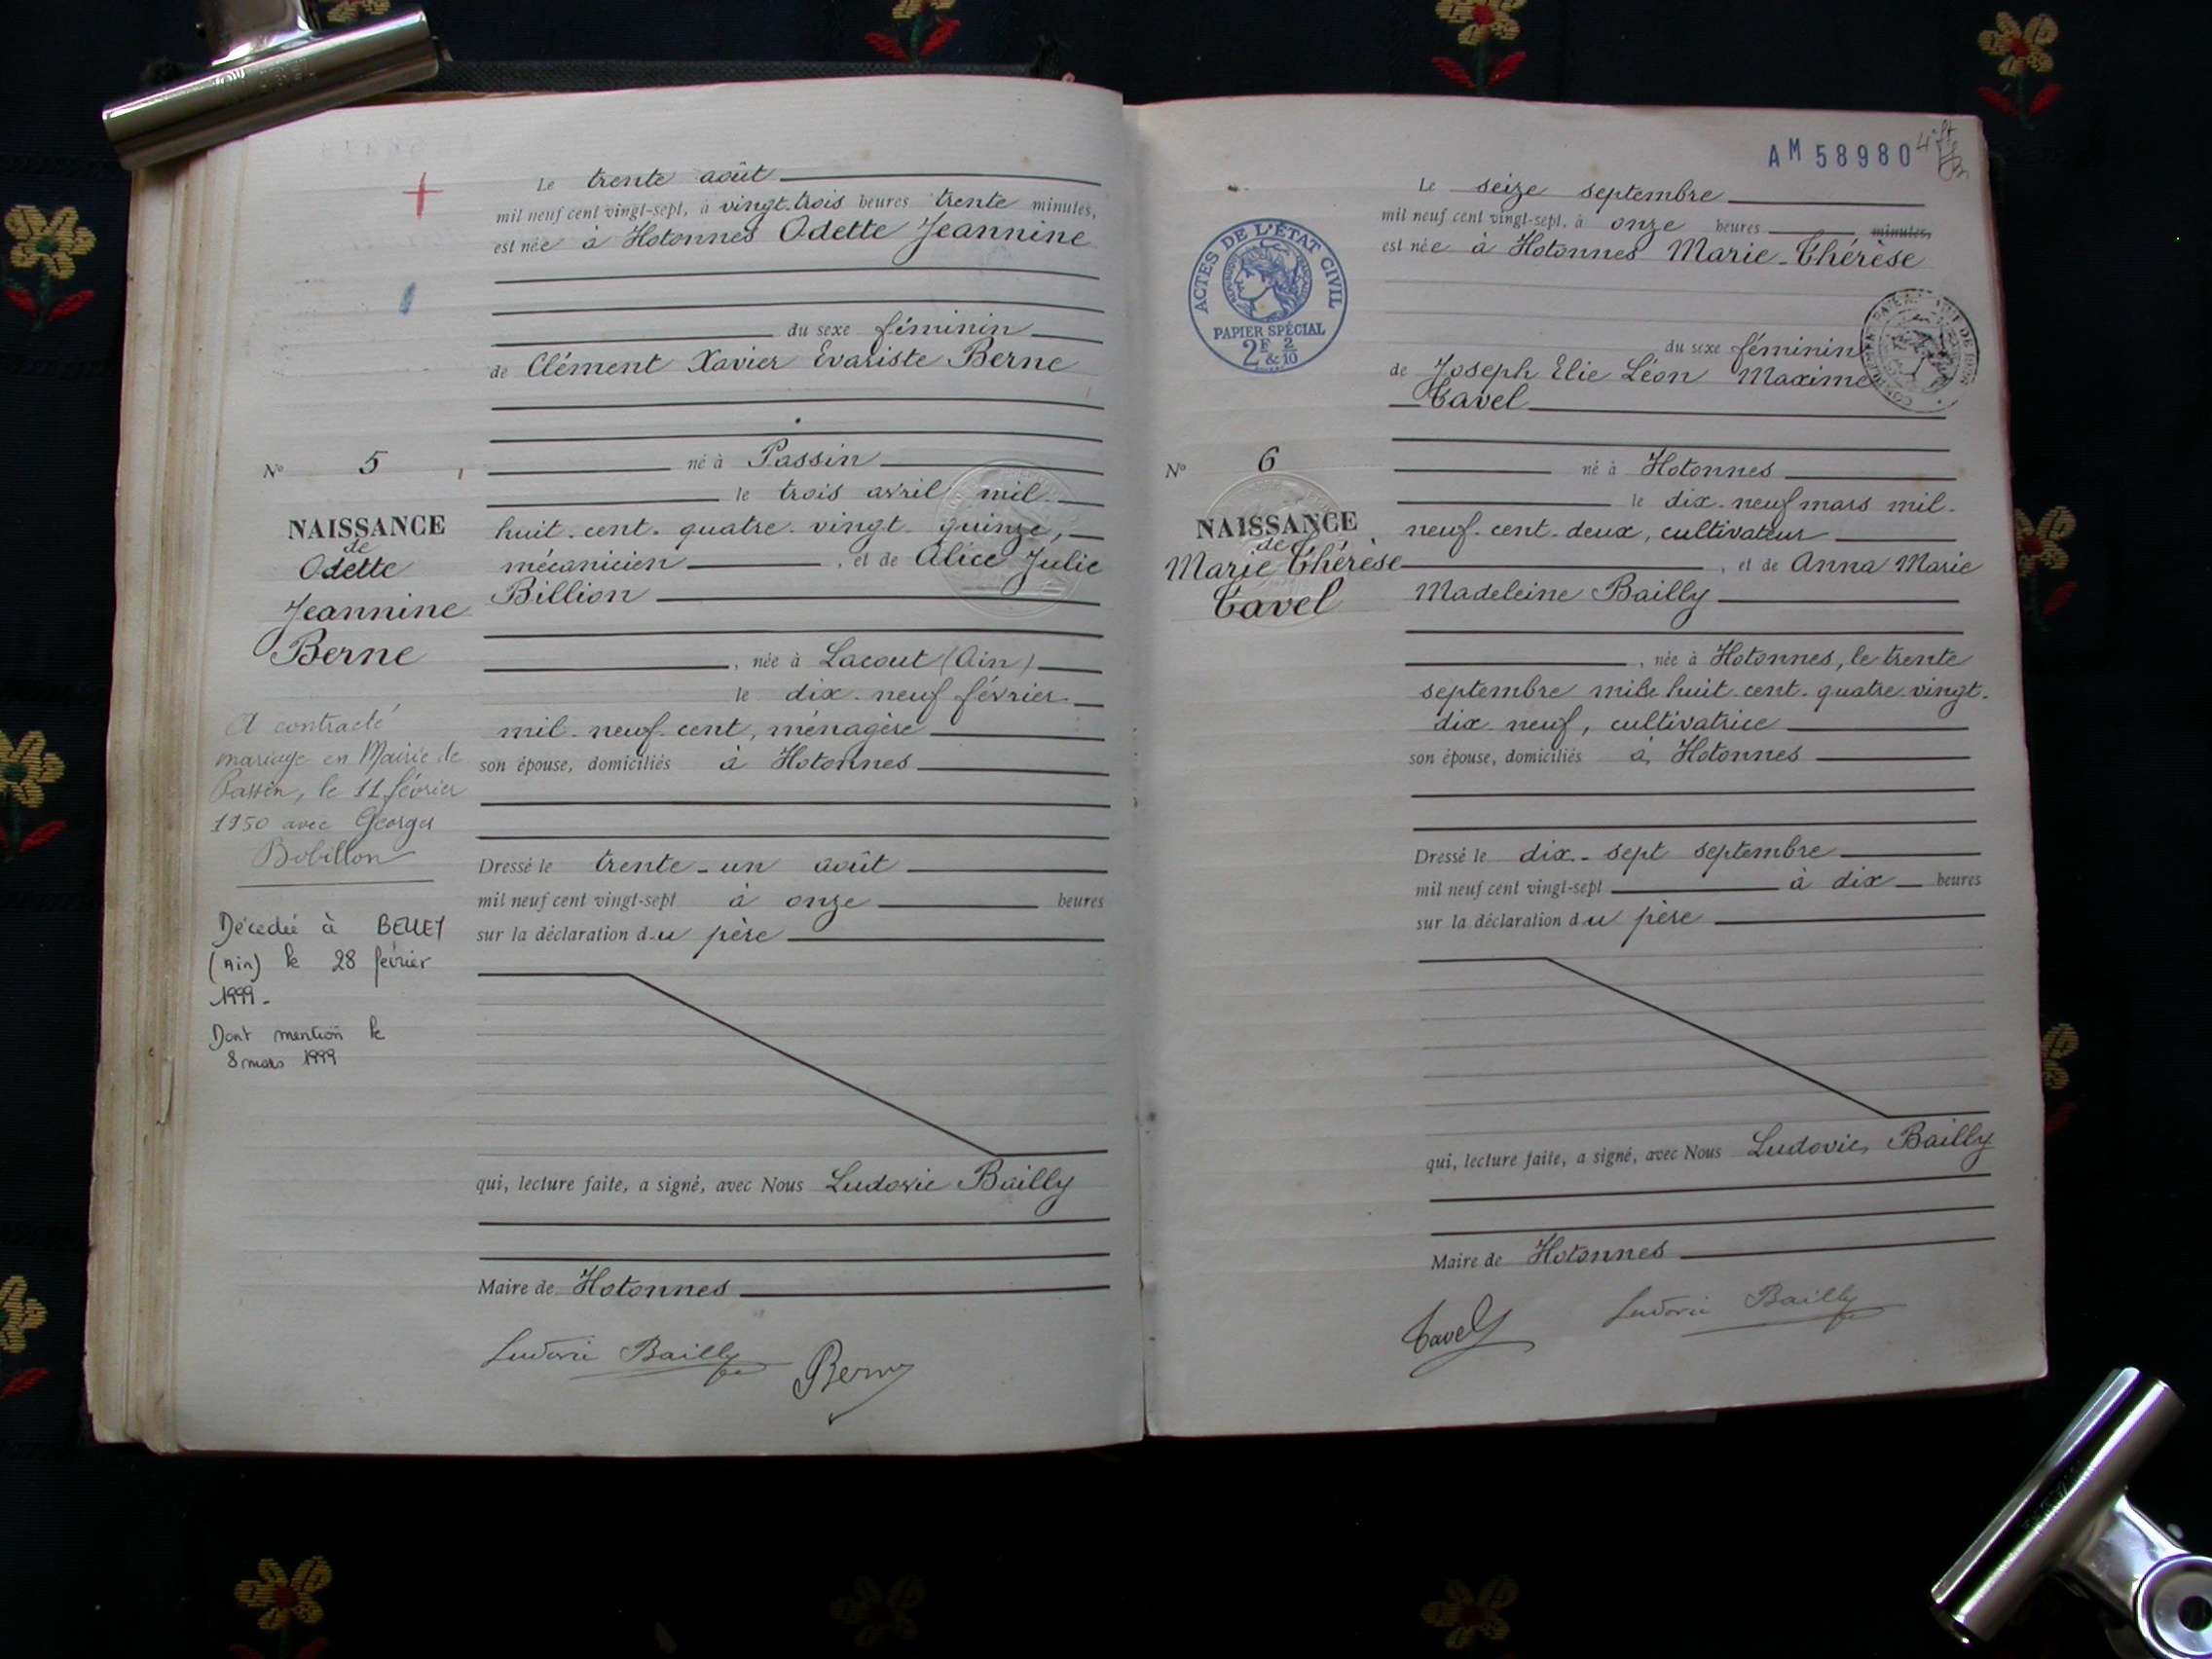 Le trente août
mil neuf cent vingt-sept, à vingt-trois heures trente minutes,
est née à Hotonnes Odette Jeannine
du sexe féminin
de Clément Xavier Evariste Berne
né à Passin
le trois avril mil
huit-cent-quatre-vingt-quinze,
mécanicien, et de Alice Julie
Billion
, née à Lacout (Ain)
le dix-neuf février
mil-neuf-cent, ménagère
son épouse, domiciliés à Hotonnes
Dressé le trente-un août
mil neuf cent vingt-sept à onze heures
sur la déclaration du père
qui, lecture faite, a signé, avec Nous Ludovic Bailly
Maire de Hotonnes
Ludovic Bailly Berne
N° 5
NAISSANCE
de
Odette
Jeannine
Berne
A contracté
mariage en Mairie de
Passin, le 11 février
1950 avec Georges
Bobillon
Décédée à BELLEY
(Ain) le 28 février
1999-
Dont mention le
8 mars 1999
AM 58980
Le seize septembre
mil neuf cent vingt-sept, à onze heures minutes,
est née à Hotonnes Marie-Thérèse
du sexe féminin
de Joseph Elie Léon Maxime
Tavel
né à Hotonnes
le dix-neuf mars mil-
neuf-cent-deux, cultivateur
, et de Anna Marie
Madeleine Bailly
, née à Hotonnes, le trente
septembre mil huit-cent-quatre vingt-
dix-neuf, cultivatrice
son épouse, domiciliés à Hotonnes
Dressé le dix-sept septembre
mil neuf cent vingt-sept à dix heures
sur la déclaration du père
qui, lecture faite, a signé, avec Nous Ludovic Bailly
Maire de Hotonnes
Tavel Ludovic Bailly
ACTES DE L'ÉTAT CIVIL
RÉPUBLIQUE FRANÇAISE
PAPIER SPÉCIAL
2F & 2/10
N° 6
NAISSANCE
de
Marie Thérèse
Tavel